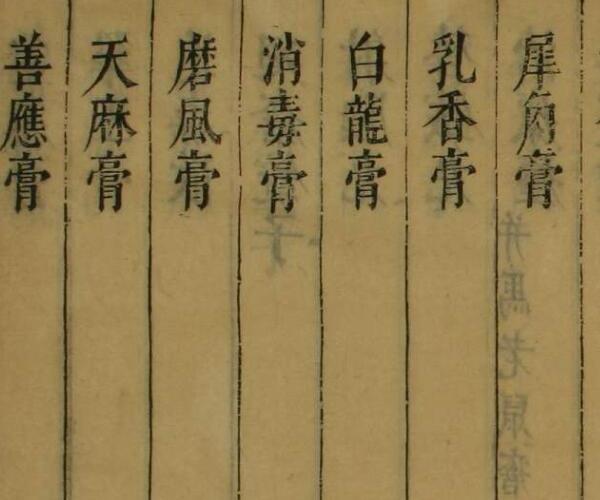 犀角膏
乳香膏
白龍膏
消毒膏
磨風膏
天麻膏
善應膏